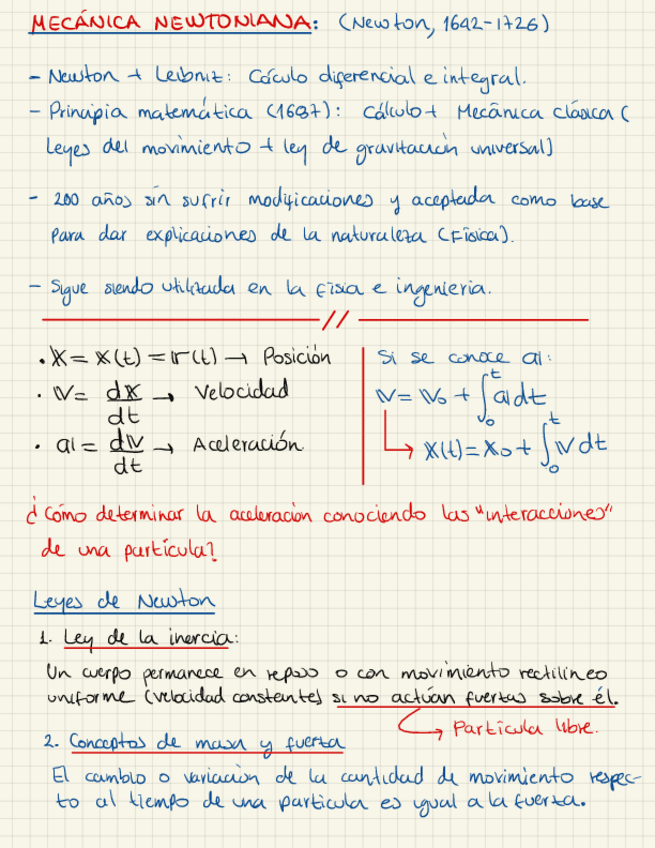 MECÁNICA NEWTONIANA: (Newton, 1642-1726)
- Newton + Leibniz: Cálculo diferencial e integral.
- Principia matemática (1687): Cálculo + Mecánica clásica (
Leyes del movimiento + ley de gravitación universal)
- 200 años sin sufrir modificaciones y aceptada como base
para dar explicaciones de la naturaleza (Física).
- Sigue siendo utilizada en la física e ingenieria.
//
• 𝕏 = 𝕏(t) = 𝕣(t) → Posición
• 𝕍 = d𝕏/dt → Velocidad
• 𝕒 = d𝕍/dt → Aceleración
Si se conoce 𝕒:
𝕍 = 𝕍₀ + ∫₀ᵗ 𝕒 dt
↳ 𝕏(t) = 𝕏₀ + ∫₀ᵗ 𝕍 dt
¿Cómo determinar la aceleración conociendo las "interacciones"
de una partícula?
Leyes de Newton
1. Ley de la inercia:
Un cuerpo permanece en reposo o con movimiento rectilíneo
uniforme (velocidad constante) si no actúan fuerzas sobre él.
↳ Partícula libre.
2. Conceptos de masa y fuerza
El cambio o variación de la cantidad de movimiento respec-
to al tiempo de una partícula es igual a la fuerza.